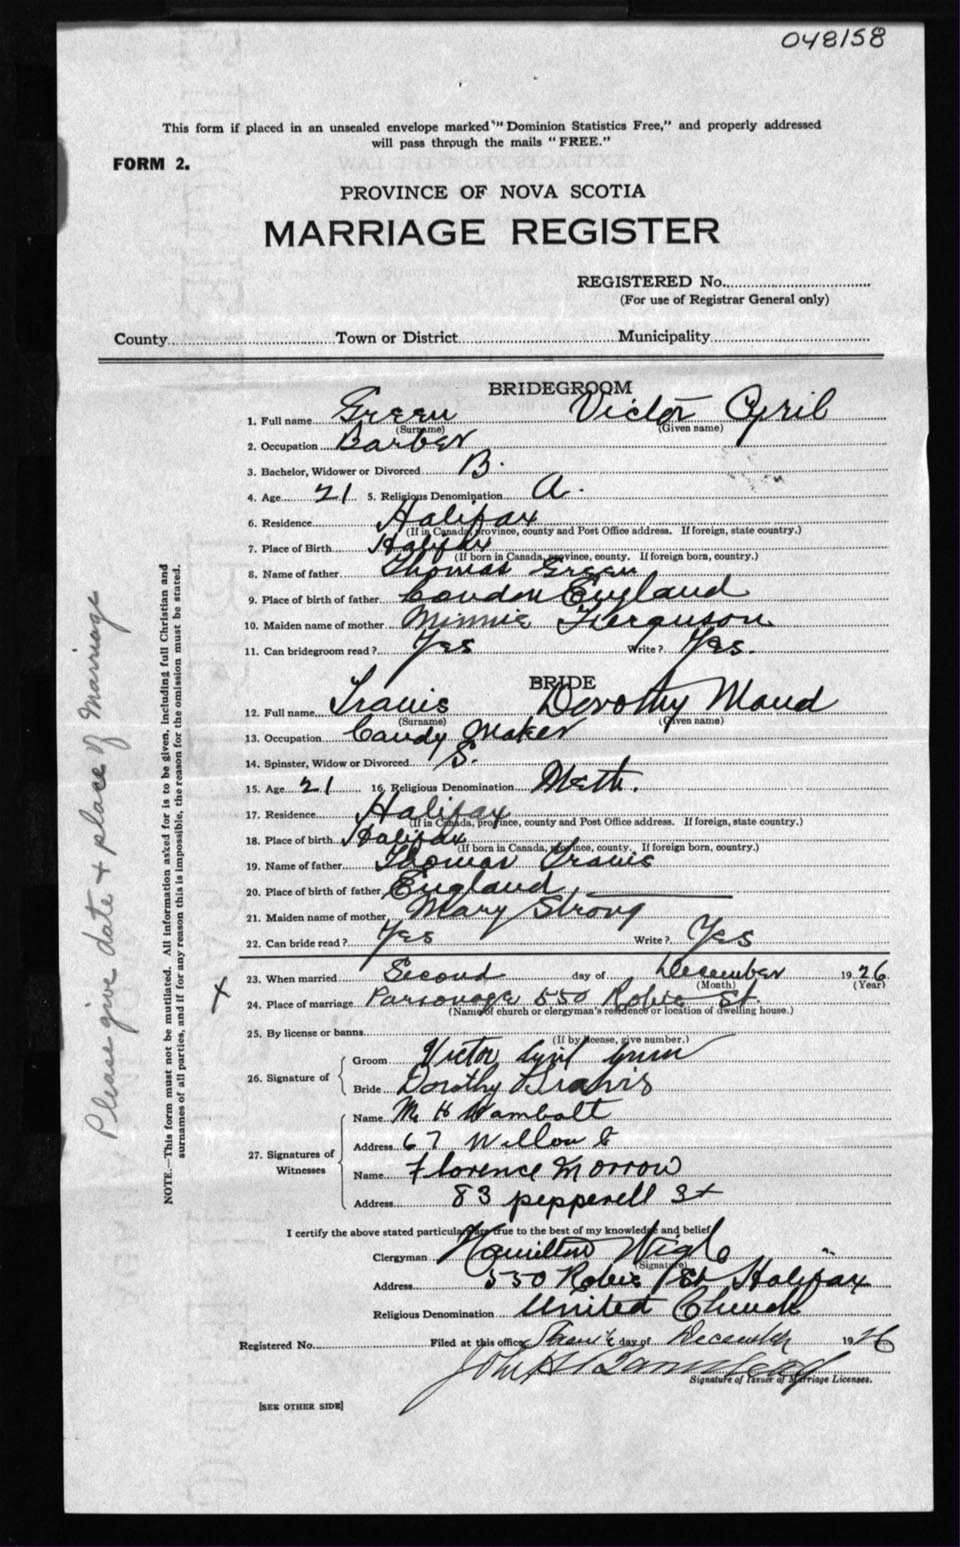 048158
This form if placed in an unsealed envelope marked "Dominion Statistics Free," and properly addressed
will pass through the mails "FREE."
FORM 2.
PROVINCE OF NOVA SCOTIA
MARRIAGE REGISTER
REGISTERED No.
(For use of Registrar General only)
County Town or District Municipality
BRIDEGROOM
1. Full name Green Victor Cyril
(Surname) (Given name)
2. Occupation Barber
3. Bachelor, Widower or Divorced B.
4. Age 21 5. Religious Denomination A.
6. Residence Halifax
(If in Canada, province, county and Post Office address. If foreign, state country.)
7. Place of Birth Halifax
(If born in Canada, province, county. If foreign born, country.)
8. Name of father Thomas Green
9. Place of birth of father London England
10. Maiden name of mother Minnie Ferguson
11. Can bridegroom read? Yes Write? Yes.
BRIDE
12. Full name Travis Dorothy Maud
(Surname) (Given name)
13. Occupation Candy Maker
14. Spinster, Widow or Divorced S.
15. Age 21 16. Religious Denomination Meth.
17. Residence Halifax
(If in Canada, province, county and Post Office address. If foreign, state country.)
18. Place of birth Halifax
(If born in Canada, province, county. If foreign born, country.)
19. Name of father Thomas Travis
20. Place of birth of father England
21. Maiden name of mother Mary Strong
22. Can bride read? Yes Write? Yes
23. When married Second day of December 1926
(Month) (Year)
X 24. Place of marriage Parsonage 550 Robie St.
(Name of church or clergyman's residence or location of dwelling house.)
25. By license or banns
(If by license, give number.)
26. Signature of Groom Victor Cyril Green
Bride Dorothy Travis
27. Signatures of Witnesses Name M H Wambolt
Address 67 Willow
Name Florence Morrow
Address 83 pepperell St
I certify the above stated particulars are true to the best of my knowledge and belief
Clergyman Hamilton
(Signature)
Address 550 Robie St Halifax
Religious Denomination United Church
Registered No. Filed at this office day of December 1926
John H
Signature of Issuer of Marriage Licenses.
[SEE OTHER SIDE]
NOTE.—This form must not be mutilated. All information asked for is to be given, including full Christian and
surnames of all parties, and if for any reason this is impossible, the reason for the omission must be stated.
Please give date + place of marriage